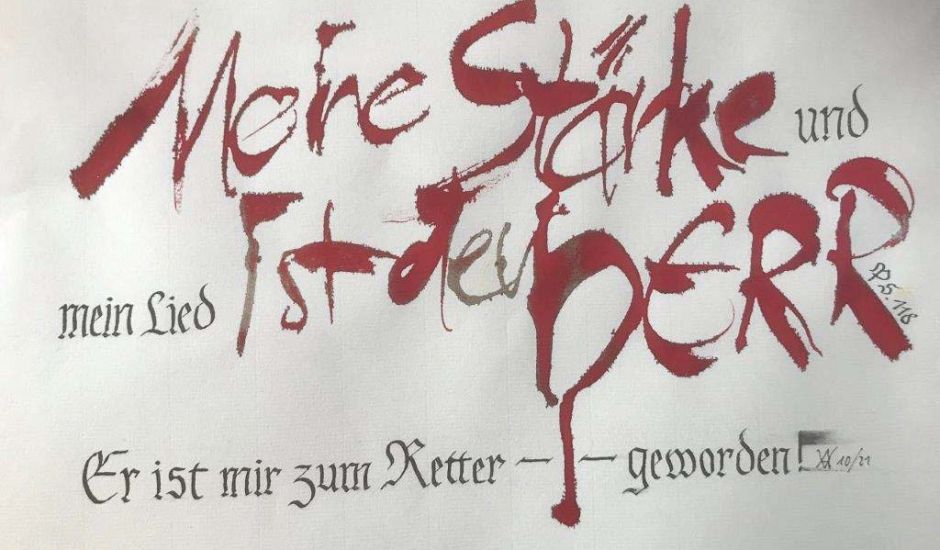 Meine Stärke und
mein Lied ist der HERR
Ps. 118
Er ist mir zum Retter – – geworden!
10/21